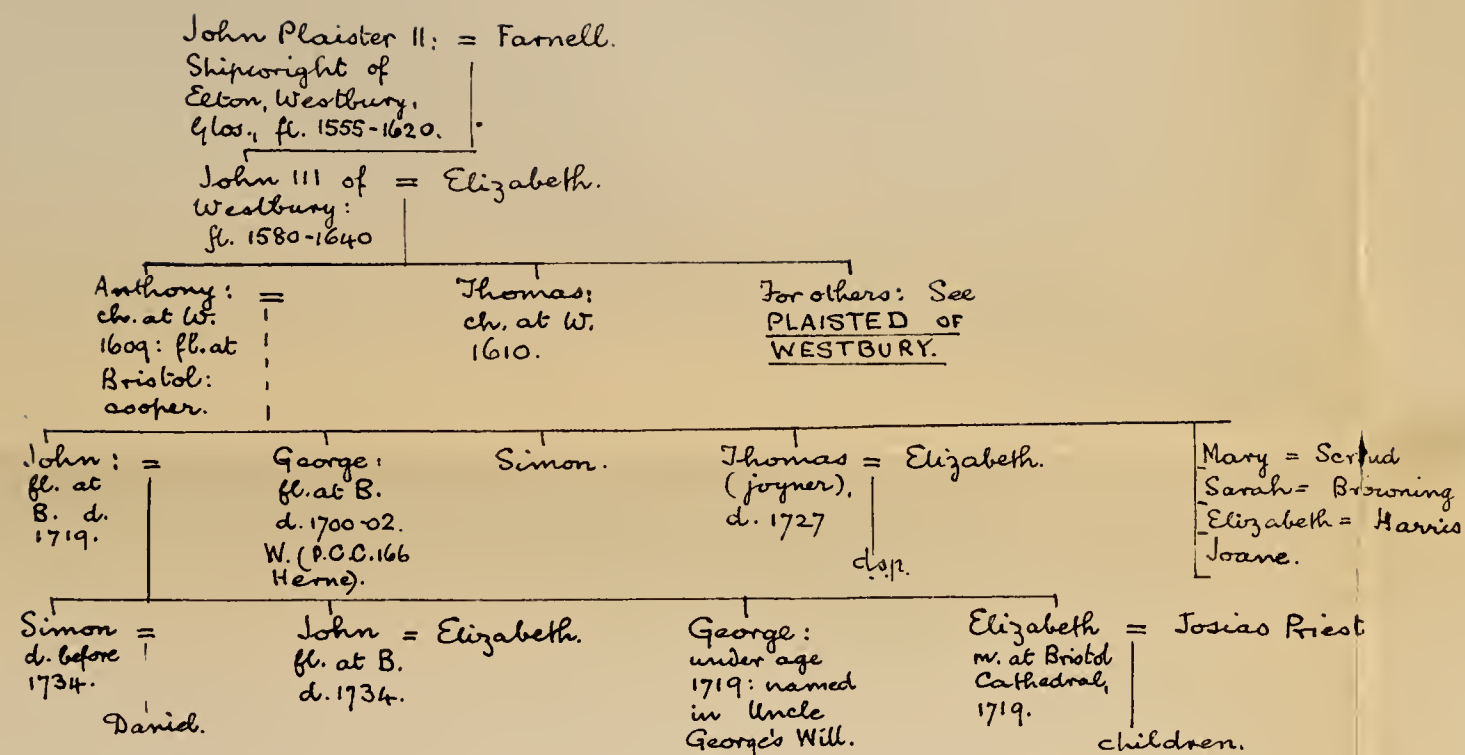 John Plaister II: = Farnell.
Shipwright of
Elton, Westbury,
Glos., fl. 1555-1620.
John III of = Elizabeth.
Westbury:
fl. 1580-1640
Anthony: =
ch. at W.
1609: fl. at
Bristol:
cooper.
Thomas:
ch. at W.
1610.
For others: See
PLAISTED OF
WESTBURY.
John: =
fl. at
B. d.
1719.
George:
fl. at B.
d. 1700-02.
W. (P.C.C. 166
Herne).
Simon.
Thomas = Elizabeth.
(joyner),
d. 1727
d.s.p.
Mary = Scrud
Sarah = Browning
Elizabeth = Harris
Joane.
Simon =
d. before
1734.
Daniel.
John = Elizabeth.
fl. at B.
d. 1734.
George:
under age
1719: named
in Uncle
George's Will.
Elizabeth = Josias Priest
m. at Bristol
Cathedral,
1719.
children.